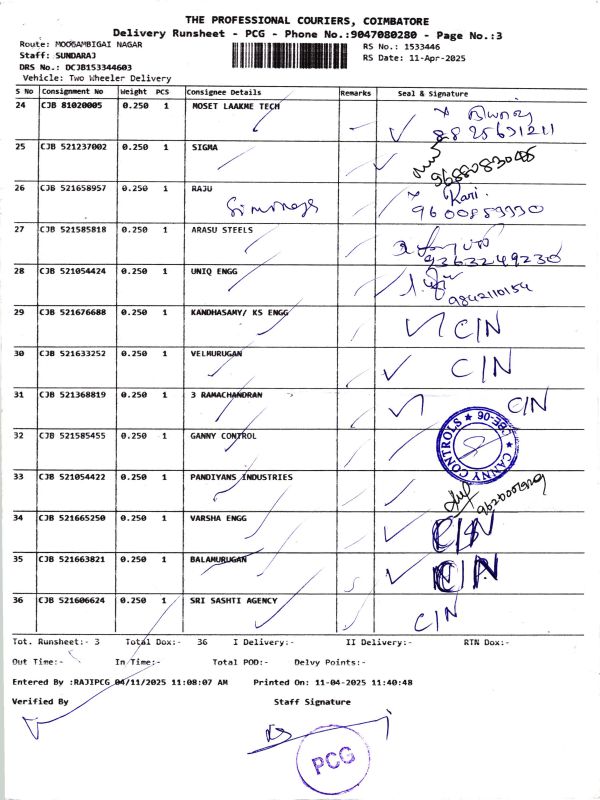 THE PROFESSIONAL COURIERS, COIMBATORE
Delivery Runsheet - PCG - Phone No.:9047080280 - Page No.:3
Route: MOOGAMBIGAI NAGAR
RS No.: 1533446
Staff: SUNDARAJ
RS Date: 11-Apr-2025
DRS No.: DCJB153344603
Vehicle: Two Wheeler Delivery
S No Consignment No Weight PCS Consignee Details Remarks Seal & Signature
24 CJB 81020005 0.250 1 MOSET LAAKME TECH
8825631211
25 CJB 521237002 0.250 1 SIGMA
9688083045
26 CJB 521658957 0.250 1 RAJU
Kari.
9600853330
27 CJB 521585818 0.250 1 ARASU STEELS
9363249230
28 CJB 521054424 0.250 1 UNIQ ENGG
9842110154
29 CJB 521676688 0.250 1 KANDHASAMY/ KS ENGG C/N
30 CJB 521633252 0.250 1 VELMURUGAN C/N
31 CJB 521368819 0.250 1 3 RAMACHANDRAN C/N
32 CJB 521585455 0.250 1 GANNY CONTROL
CANNY CONTROLS
33 CJB 521054422 0.250 1 PANDIYANS INDUSTRIES
34 CJB 521665250 0.250 1 VARSHA ENGG C/N
35 CJB 521663821 0.250 1 BALAMURUGAN C/N
36 CJB 521606624 0.250 1 SRI SASHTI AGENCY C/N
Tot. Runsheet:- 3 Total Dox:- 36 I Delivery:- II Delivery:- RTN Dox:-
Out Time:- In Time:- Total POD:- Delvy Points:-
Entered By :RAJIPCG 04/11/2025 11:08:07 AM Printed On: 11-04-2025 11:40:48
Verified By Staff Signature
PCG